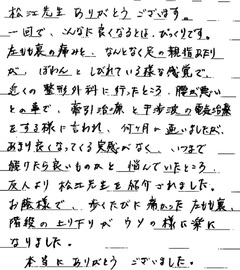 松江先生 ありがとう ございます。
一回で、こんなに良くなるとは、びっくりです。
左もも裏の痛みと、なんとなく足の親指あたり
が、ぼわんと しびれている様な感覚で、
近くの整形外科に行ったところ、腰が悪い
との事で、牽引治療と干渉波の電気治療
をする様に言われ、何ヶ月か通いましたが、
あまり良くなってくる実感がなく、いつまで
頼りたら良いものかと 悩んでいたところ、
友人より 松江先生を紹介されました。
お陰様で、歩くたびに痛かった左もも裏、
階段の上り下りが ウソの様に楽に
なりました。
本当に ありがとう ございました。